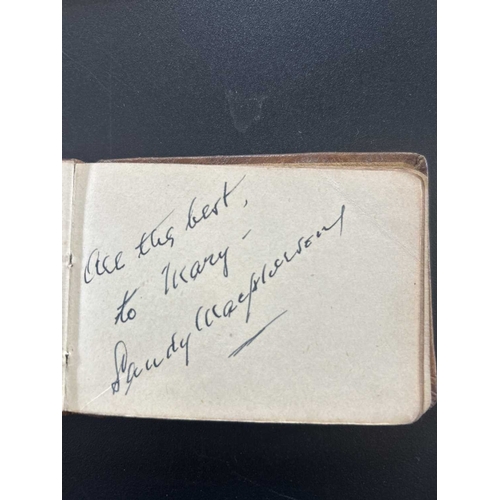 All the best,
to Mary –
Sandy Macpherson